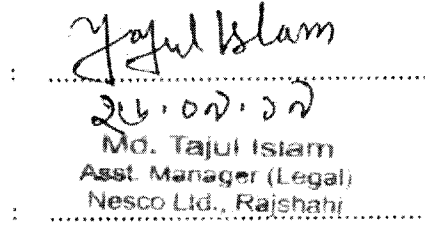 : Tajul Islam
২৮.০৭.১৯
Md. Tajul Islam
Asst. Manager (Legal)
Nesco Ltd., Rajshahi
: